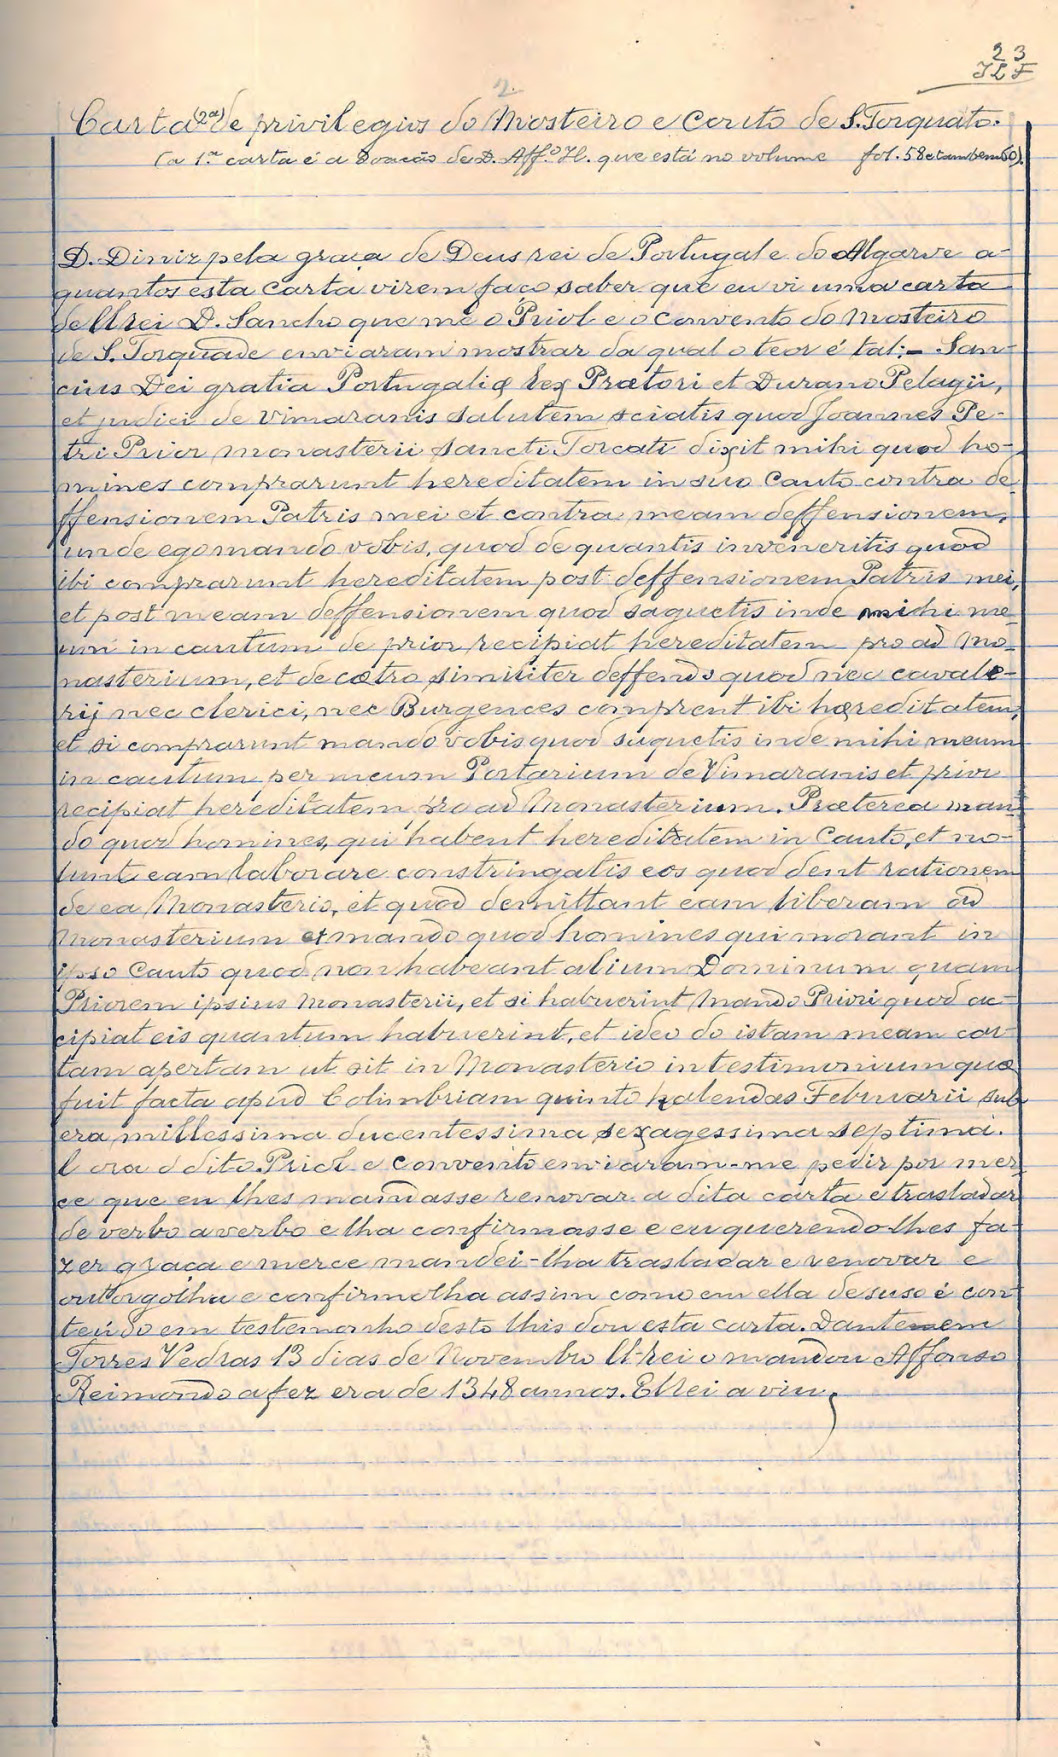 23
JLF
2.
Carta (2ª) de privilegios do Mosteiro e Couto de S. Torquato.
(a 1.ª carta é a Doação de D. Aff.º H. que está no volume fol. 58 e tambem 60).
D. Diniz pela graça de Deus rei de Portugal e do Algarve a
quantos esta carta virem faço saber que eu vi uma carta
del rei D. Sancho que me o Priol e o convento do Mosteiro
de S. Torquade enviaram mostrar da qual o teor é tal: – San-
cius Dei gratia Portugaliæ Rex Prætori et Durano Pelagii,
et judici de Vimaranis salutem sciatis quod Joannes Pe-
tri Prior monasterii sancti Torcati dixit mihi quod ho-
mines comprarunt hereditatem in suo Cauto contra de-
ffensionem Patris mei et contra meam deffensionem,
unde ego mando vobis, quod de quantis inveneritis quod
ibi comprarunt hereditatem post deffensionem Patris mei,
et post meam deffensionem quod saquetis inde mihi me-
um in cautum de prior recipiat hereditatem pro ad mo-
nasterium, et de cætro similiter deffendo quod nec cavale-
rij nec clerici, nec Burgences comprent ibi hæreditatem,
et si comprarunt mando vobis quod saquetis inde mihi meum
in cautum per meum Portarium de Vimaranis et prior
recipiat hereditatem pro ad Monasterium. Præterea man-
do quod homines, qui habent hereditatem in Cauto, et no-
lunt eam laborare constringatis eos quod dent rationem
de ea Monasterio, et quod demittant eam liberam ad
Monasterium et mando quod homines qui morant in
ipso Cauto quod non habeant alium Dominum quam
Priorem ipsius Monasterii, et si habuerint Mando Priori quod ac-
cipiat eis quantum habuerint, et ideo do istam meam car-
tam apertam ut sit in Monasterio in testimonium quæ
fuit facta apud Colimbriam quinto kalendas Februarii sub
era millessima ducentessima sexagessima septima.
E ora o dito Priol e convento enviaram-me pedir por mer-
ce que eu lhes mandasse renovar a dita carta e trasladar
de verbo a verbo e lha confirmasse e eu querendo lhes fa-
zer graça e merce mandei-lha trasladar e renovar e
outorgolha e confirmolha assim como em ella de suso é con-
teúdo em testemonho desto lhis dou esta carta. Dante em
Torres Vedras 13 dias de Novembro El-rei o mandou Affonso
Reimondo a fez era de 1348 annos. El Rei a viu,